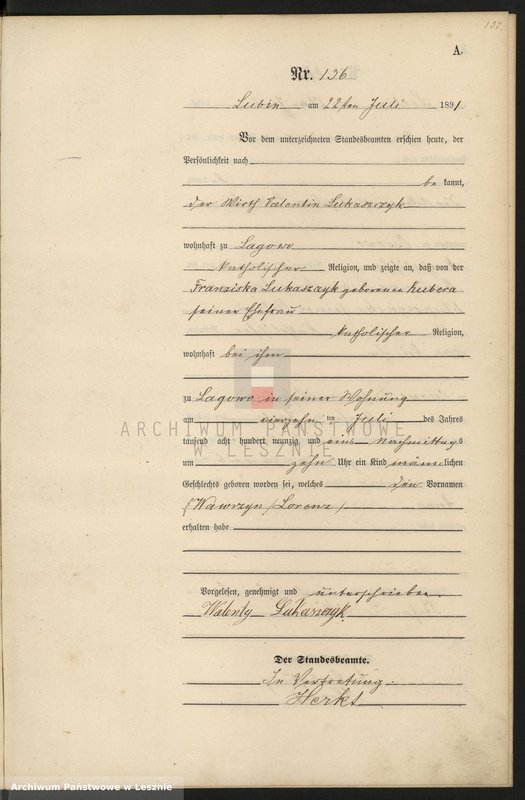 137.
A.
Nr. 136
Lubin am 22ten Juli 1891
Vor dem unterzeichneten Standesbeamten erschien heute, der
Persönlichkeit nach
be kannt,
der Wirth Valentin Lukaszczyk
wohnhaft zu Lagowo
katholischer Religion, und zeigte an, daß von der
Franziska Lukaszczyk geborenen Kubera
seiner Ehefrau
katholischer Religion,
wohnhaft bei ihm
zu Lagowo in seiner Wohnung
am vierzehn ten Juli des Jahres
tausend acht hundert neunzig und eins Nachmittags
um zehn Uhr ein Kind männlichen
Geschlechts geboren worden sei, welches den Vornamen
(Wawrzyn) Lorenz
erhalten habe
Vorgelesen, genehmigt und unterschrieben
Walenty Lukaszczyk
Der Standesbeamte.
In Vertretung.
Herkt
ARCHIWUM PAŃSTWOWE
W LESZNIE
Archiwum Państwowe w Lesznie